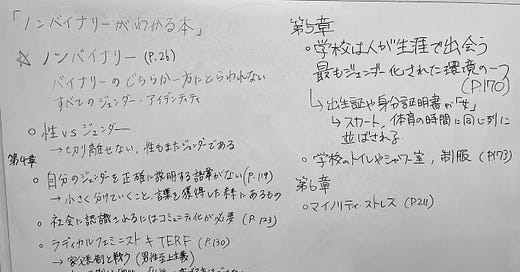 「ノンバイナリーがわかる本」
☆ ノンバイナリー (P.26)
バイナリーのどちらか一方にとらわれない
すべてのジェンダー・アイデンティティ
○ 性 vs ジェンダー
→ 切り離せない、性もまたジェンダーである
第4章
○ 自分のジェンダーを正確に説明する語彙がない (P.119)
→ 小さく分けていくこと、言葉を獲得した先にあるもの
○ 社会に認識されるにはコミュニティ化が必要 (P.123)
○ ラディカルフェミニスト ≠ TERF (P.130)
→ 家父長制と戦う (男性至上主義)
第5章
○ 学校は人が生涯で出会う
最もジェンダー化された環境の一つ
(P.170)
↳ 出生証や身分証明書が「女」
→ スカート、体育の時間に同じ列に
並ばされる
○ 学校のトイレやシャワー室、制服 (P.173)
第6章
○ マイノリティ・ストレス (P.211)